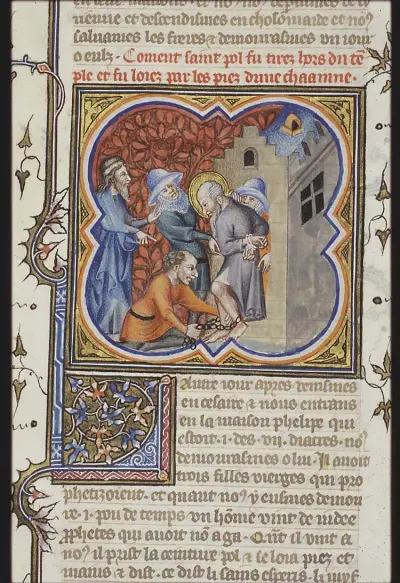 neuue et descendismes en tholomaide et noꝰ
saluames les freres & demourasmes un iour
o eulz. Coment saint pol fu tirez hors du tẽ
ple et fu loiez par les piez dune chaainne.
Lautre iour apres uenismes
en cesaire & nous entrans
en la maison phelipe qui
estoit .i. des .vij. diacres. noꝰ
demourasmes o lui. Il auoit
trois filles vierges qui pro
phetizoient. et quant noꝰ y eusmes demou
re .i. pou de temps vn hõme uint de iudee
ꝓphetes qui auoit nõ aga. Qñt il uint a
noꝰ il prist la ceinture pol & se loia piez et
mains & dist. ce dist li sains esperis. li